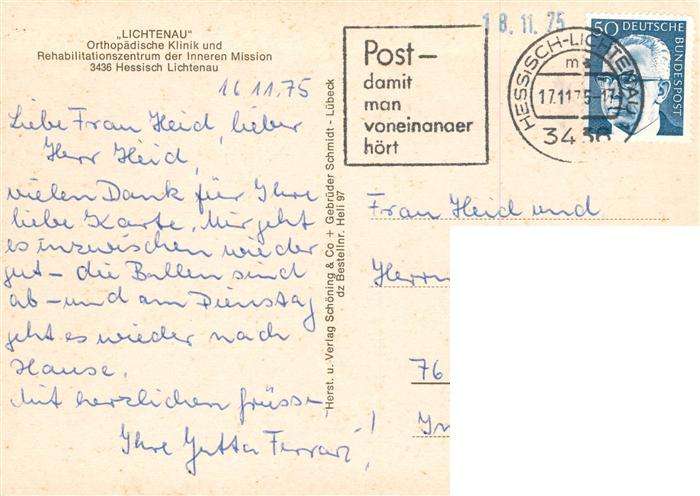 „LICHTENAU"
Orthopädische Klinik und
Rehabilitationszentrum der Inneren Mission
3436 Hessisch Lichtenau
16 11.75
Liebe Frau Heid, lieber
Herr Heid,
vielen Dank für Ihre
liebe Karte. Mir geht
es inzwischen wieder
gut – die Ballen sind
ab – und am Dienstag
geht es wieder nach
Hause.
Mit herzlichen Grüssen,
Ihre Jutta Ferrari
Herst. u. Verlag Schöning & Co + Gebrüder Schmidt - Lübeck
dz Bestellnr. Heli 97
18.11.75
Post –
damit
man
voneinander
hört
HESSISCH-LICHTENAU
17.11.75-17
3436
50 DEUTSCHE
BUNDESPOST
Frau Heid und
Herrn
76